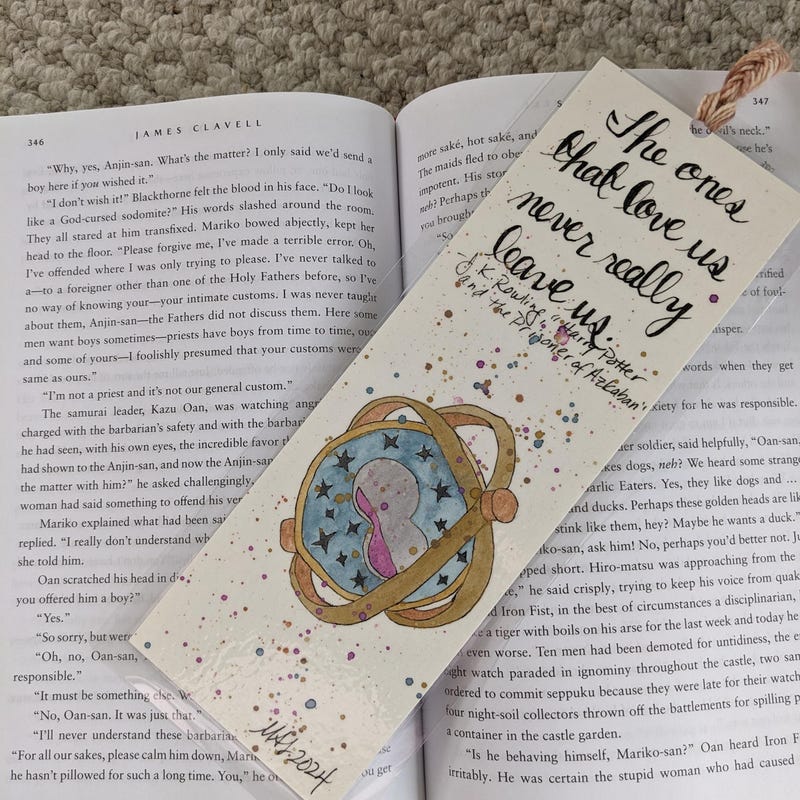 346
JAMES CLAVELL
"Why, yes, Anjin-san. What's the matter? I only said we'd send a
boy here if you wished it."
"I don't wish it!" Blackthorne felt the blood in his face. "Do I look
like a God-cursed sodomite?" His words slashed around the room.
They all stared at him transfixed. Mariko bowed abjectly, kept her
head to the floor. "Please forgive me, I've made a terrible error. Oh,
I've offended where I was only trying to please. I've never talked to
a—to a foreigner other than one of the Holy Fathers before, so I've
no way of knowing your—your intimate customs. I was never taught
about them, Anjin-san—the Fathers did not discuss them. Here some
men want boys sometimes—priests have boys from time to time,
and some of yours—I foolishly presumed that your customs were
same as ours."
"I'm not a priest and it's not our general custom."
The samurai leader, Kazu Oan, was watching
charged with the barbarian's safety and with the
he had seen, with his own eyes, the incredible favor
had shown to the Anjin-san, and now the Anjin-san
the matter with him?" he asked challengingly,
woman had said something to offend his
Mariko explained what had been
replied. "I really don't understand
she told him.
Oan scratched his head in
you offered him a boy?"
"Yes."
"So sorry, but
"Oh, no, Oan-san,
responsible."
"It must be something else.
"No, Oan-san. It was just that."
"I'll never understand these
"For all our sakes, please calm him down,
he hasn't pillowed for such a long time. You," he
get
347
more saké, hot saké, and
The maids fled to
impotent. His
neh? Perhaps
you
The ones
that love us
never really
leave us.
J.K. Rowling, "Harry Potter
and the Prisoner of Azkaban"
MKJ 2024
neck."
he's
of
words when they get
for he was responsible.
soldier, said helpfully, "Oan-san,
dogs, neh? We heard some strange
Eaters. Yes, they like dogs and ...
and ducks. Perhaps these golden heads are like
stink like them, hey? Maybe he wants a duck."
ask him! No, perhaps you'd better not.
short. Hiro-matsu was approaching from the
he said crisply, trying to keep his voice from
Iron Fist, in the best of circumstances a disciplinarian,
a tiger with boils on his arse for the last week and today he
even worse. Ten men had been demoted for untidiness, the
watch paraded in ignominy throughout the castle, two
ordered to commit seppuku because they were late for their watch,
four night-soil collectors thrown off the battlements for spilling
a container in the castle garden.
"Is he behaving himself, Mariko-san?" Oan heard Iron
irritably. He was certain the stupid woman who had caused